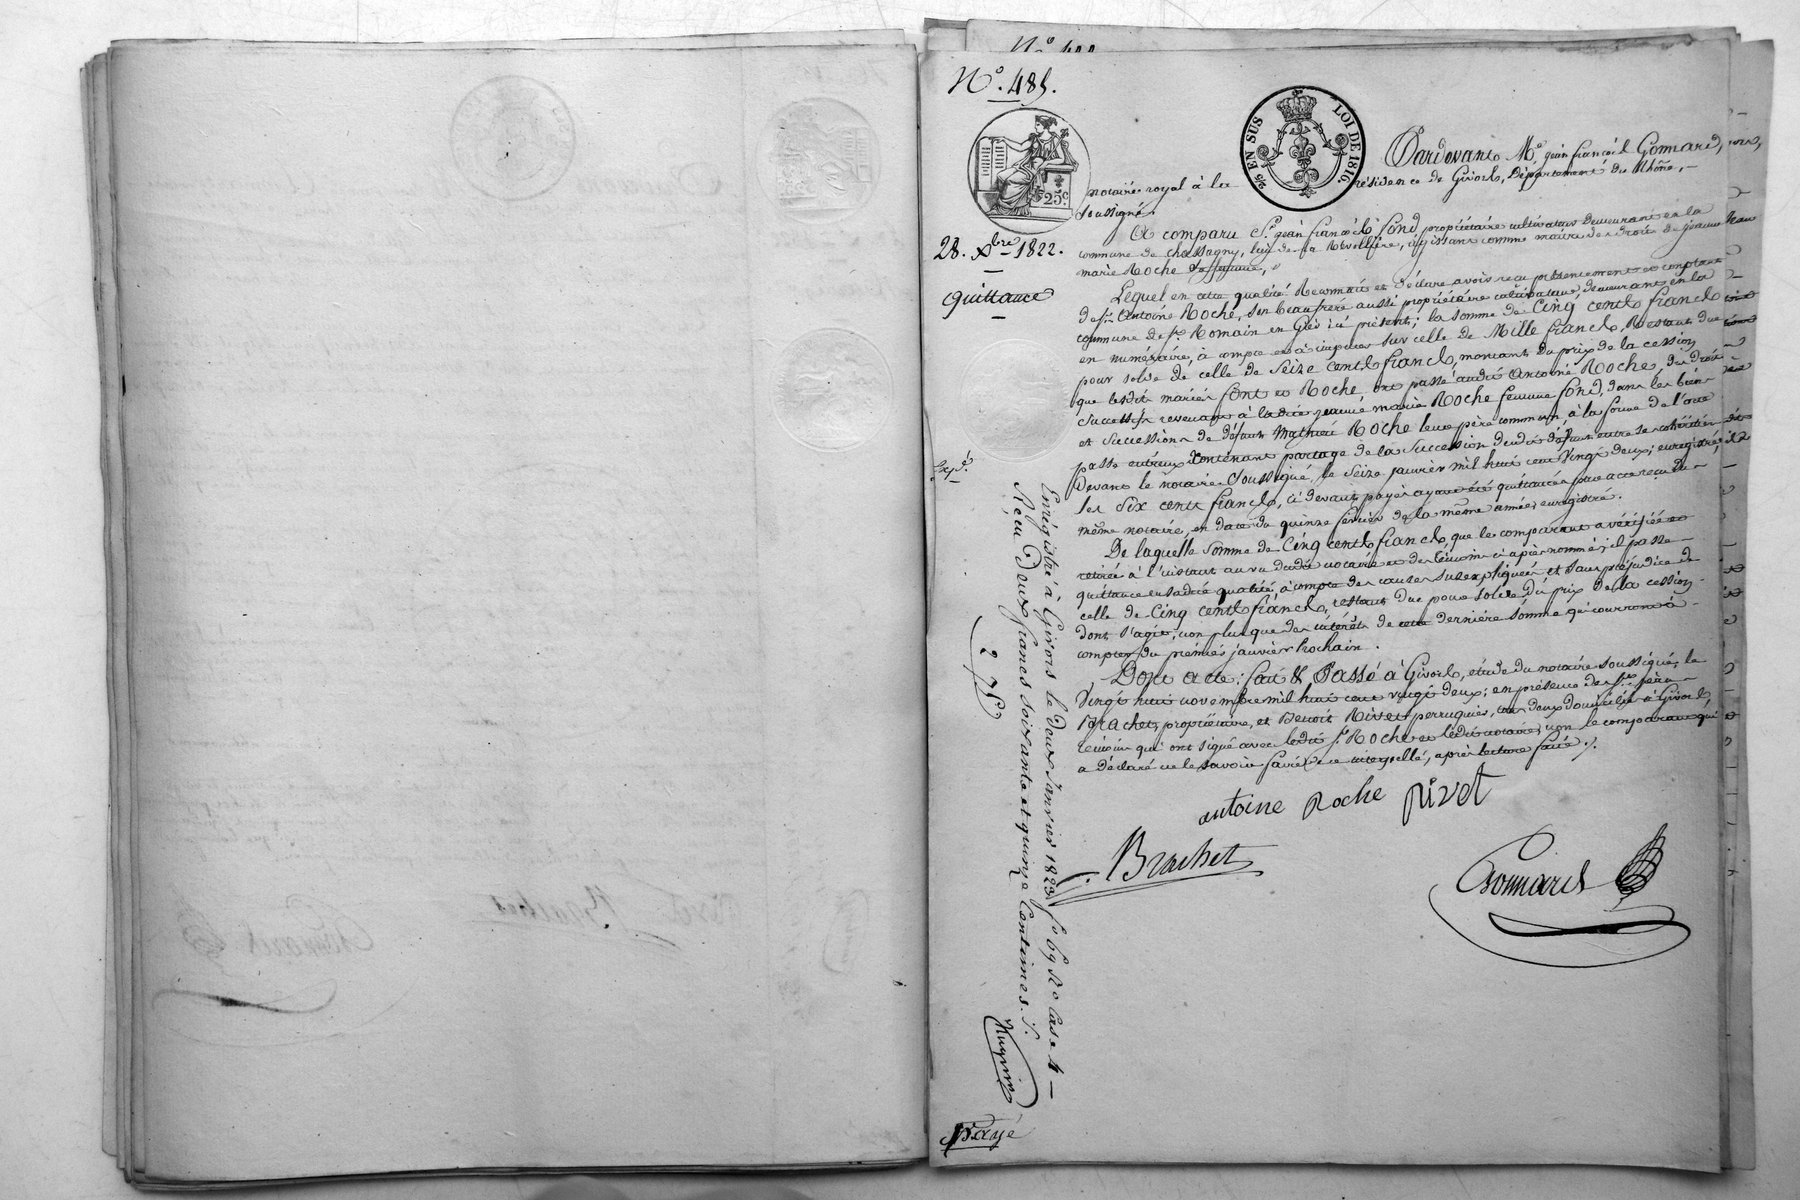 N.° 485.
25 EN SUS LOI DE 1816.
25.c
28. Xbre 1822.
Quittance
Exp.é
Pardevant M.e jean françois Gonnard,
notaire royal à la résidence de Givors, Département du Rhône,
soussigné.
A comparu S.r jean françois fond, propriétaire cultivateur demeurant en la
commune de chassagny, lieu de la agissant comme maitre des droits de jeanne
marie Roche sa femme,
Lequel en cette qualité Reconnait et déclare avoir reçu présentement et comptant
de s.r Antoine Roche, son beaufrère aussi propriétaire cultivateur demeurant en la
commune de s.t Romain en Giès ici présent; la somme de Cinq cents francs
en numéraire, à compte et à imputer sur celle de Mille francs, Restant due
pour solde de celle de Seize cents francs, montant du prix de la cession
que lesdits mariés font et Roche ont passé audit Antoine Roche, des droits
successifs revenant à ladite jeanne marie Roche femme fond, dans les biens
et succession de défunt Mathieu Roche leur père commun, à la forme de l'acte
passé entr'eux contenant partage de la succession dudit défunt entre ses cohéritiers
Devant le notaire soussigné, le Seize janvier mil huit cent vingt deux, enregistré;
les Six cents francs, ci devant payés ayant été quittancés par acte reçu du
même notaire, en date du quinze février de la même année, enregistré.
De laquelle somme de Cinq cents francs, que le comparant a vérifiée et
retirée à l'instant au vu dudit notaire et des témoins ci après nommés; il passe
quittance en sadite qualité, à compte des causes susexpliquées et sans préjudice de
celle de Cinq cents francs, restant due pour solde, du prix de la cession
dont s'agit, non plus que des intérêts de cette dernière somme qui courront à
compter du premier janvier prochain.
Dont acte: fait & Passé à Givors, étude du notaire soussigné, le
vingt huit novembre mil huit cent vingt deux; en présence de s.rs
Brachet, propriétaire, et Benoit Rivet perruquier, tous deux domiciliés à Givors,
témoins qui ont signé avec ledit s.r Roche et ledit notaire, non le comparant qui
a déclaré ne le savoir faire de ce interpellé, après lecture faite.
antoine Roche Rivet
Brachet
Gonnard
Enregistré à Givors le Deux Janvier 1823 f.° 69 R.° Case 4
Reçu Deux francs soixante et quinze Centimes.
2 75
Payé